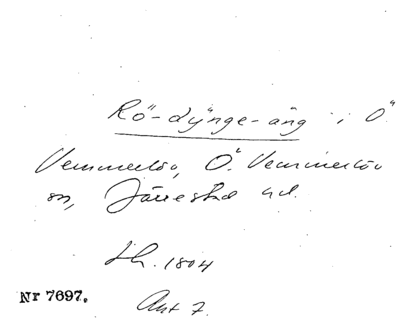 Rö-dynge-äng i Ö
Vemmerlöv, Ö. Vemmerlöv
sn, Järrestad hd.
Sk. 1804
Nr 7697.
Akt 7.